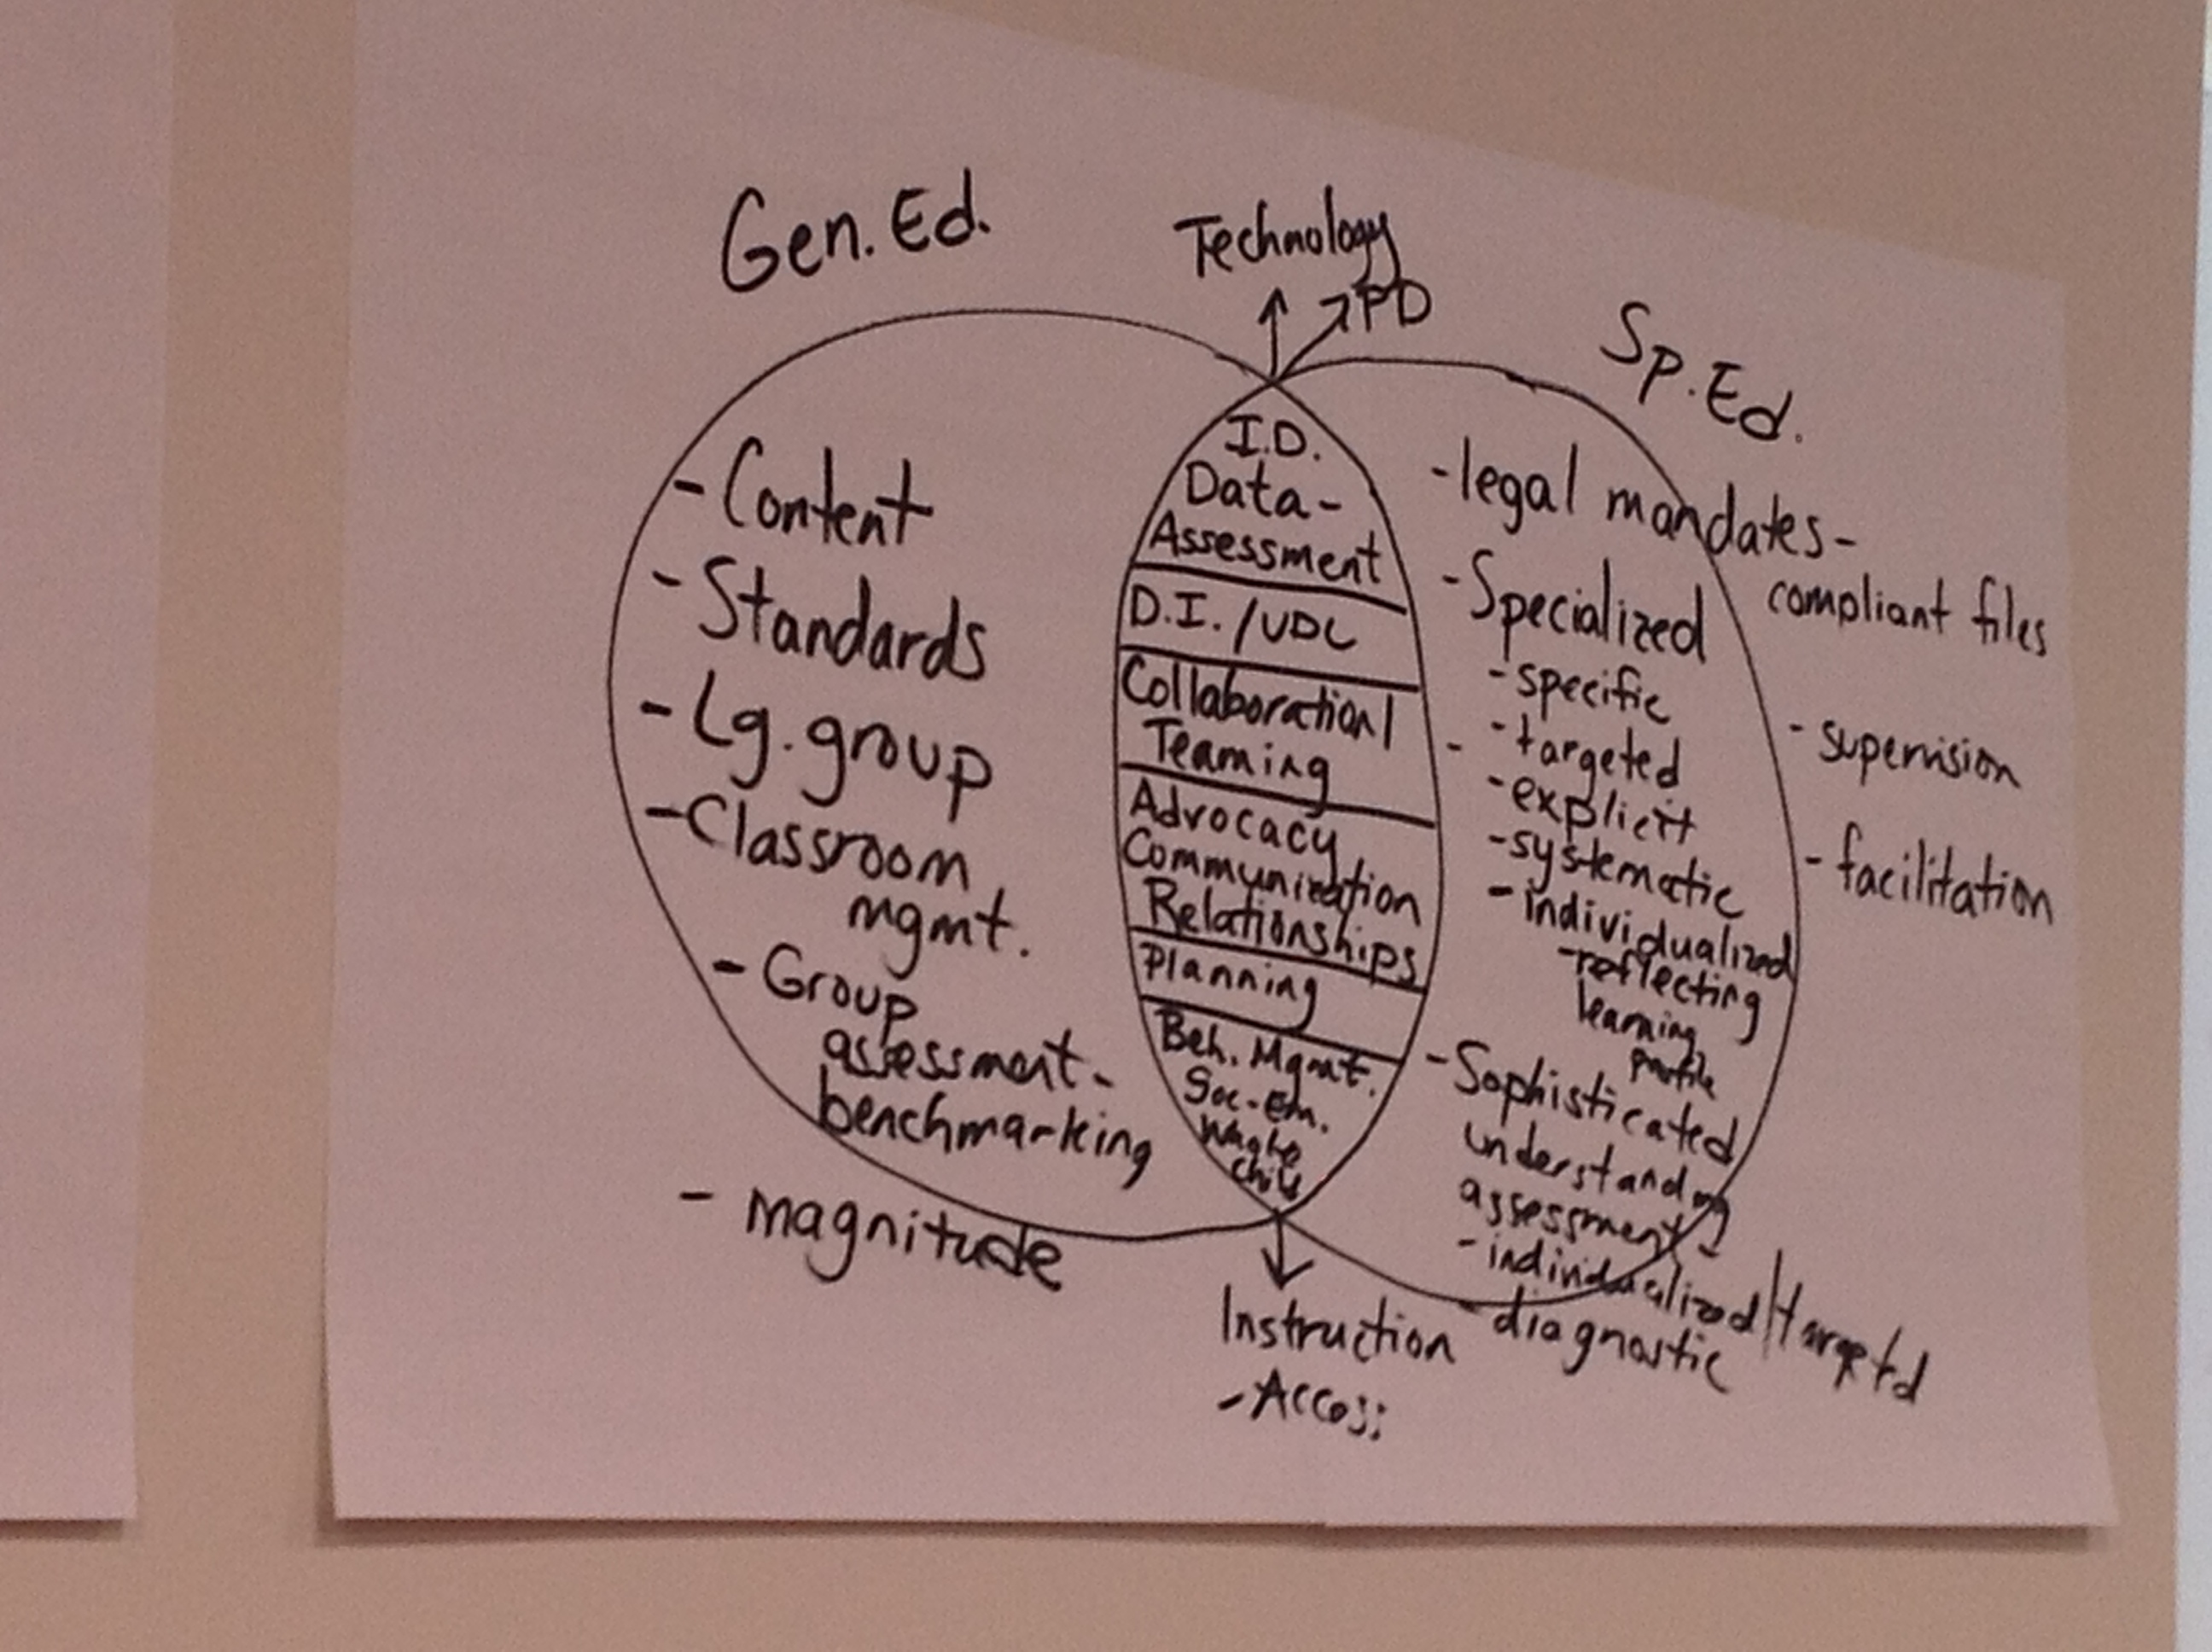 Gen. Ed.
- Content
- Standards
- Lg. group
- Classroom
mgmt.
- Group
assessment -
benchmarking
- magnitude
Technology
PD
I.D.
Data -
Assessment
D.I. / UDL
Collaboration/
Teaming
Advocacy
Communication
Relationships
Planning
Beh. Mgmt.
Soc-Em.
Whole
Child
Instruction
- Access
Sp. Ed.
- legal mandates -
compliant files
- Specialized
- specific
- targeted
- explicit
- systematic
- individualized
- reflecting
learning
profile
- Sophisticated
understanding
assessment -
- individualized/targeted
- diagnostic
- supervision
- facilitation